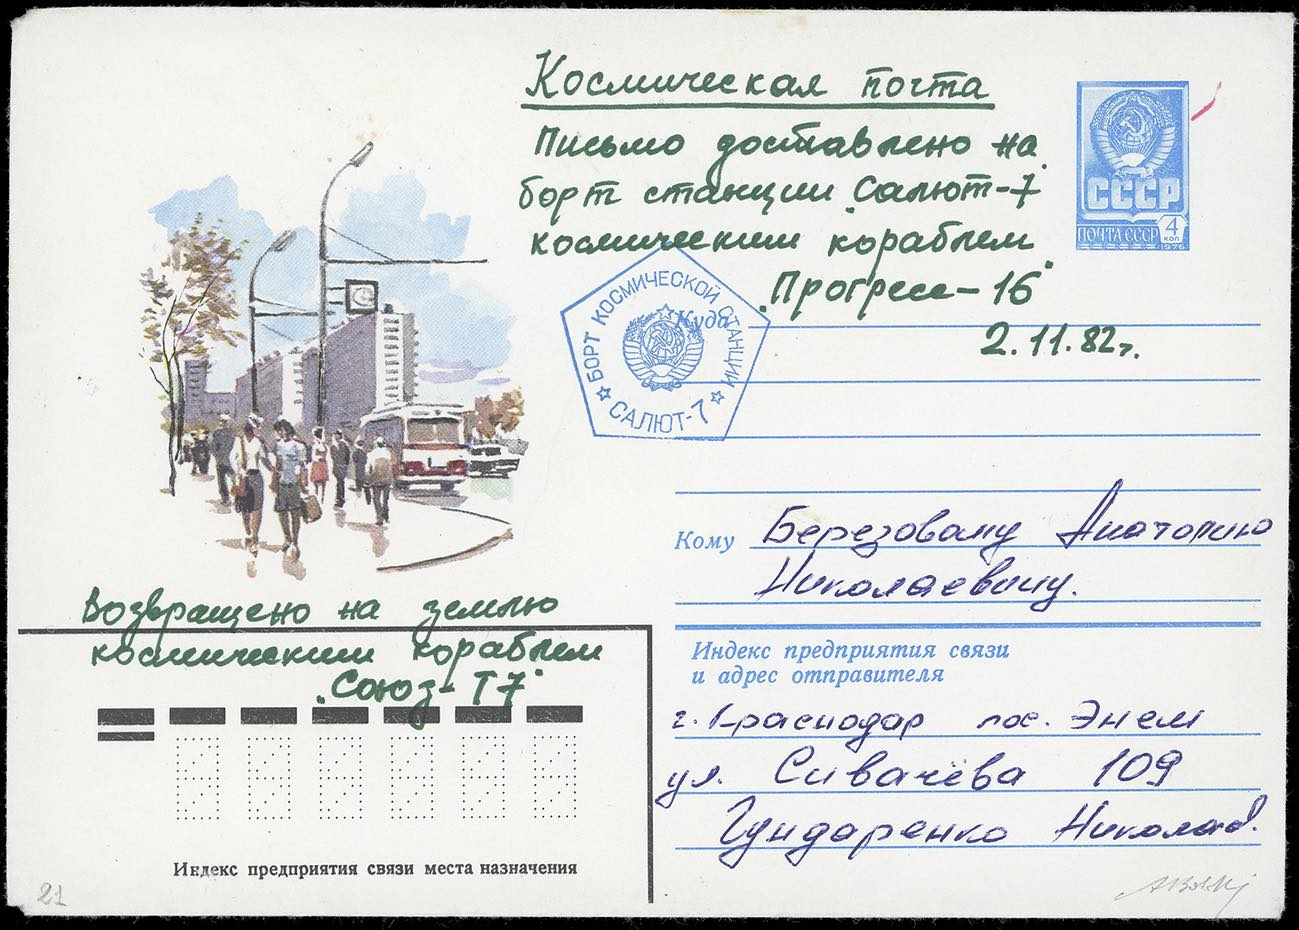 Космическая почта
Письмо доставлено на
борт станции "Салют-7"
космическим кораблем
"Прогресс-16"
2.11.82г.
СССР
ПОЧТА СССР
4
КОП
1976
БОРТ КОСМИЧЕСКОЙ СТАНЦИИ
САЛЮТ-7
Куда
Кому Березовому Анатолию
Николаевичу.
Возвращено на землю
космическим кораблем
"Союз-Т7"
Индекс предприятия связи
и адрес отправителя
г. Краснодар пос. Энем
ул. Сивачёва 109
Гундаренко
Индекс предприятия связи места назначения
21